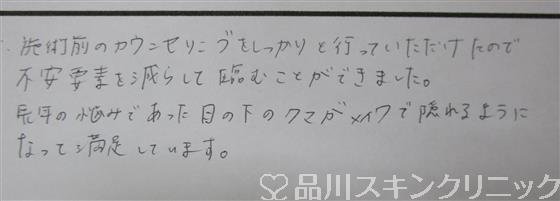 施術前のカウンセリングをしっかりと行っていただけたので
不安要素を減らして臨むことができました。
長年の悩みであった目の下のクマがメイクで隠れるように
なって満足しています。
品川スキンクリニック